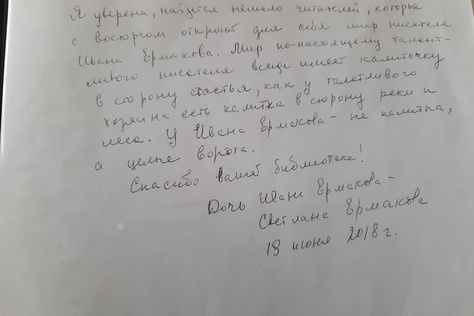 Я уверена, найдется немало читателей, которые
с восторгом откроют для себя мир писателя
Ивана Ермакова. Мир по-настоящему талант-
ливого писателя всегда имеет калиточку
в сторону счастья, как у талантливого
хозяина есть калитка в сторону реки и
леса. У Ивана Ермакова - не калитка,
а целые ворота.
Спасибо вашей библиотеке!
Дочь Ивана Ермакова -
Светлана Ермакова
19 июня 2018 г.